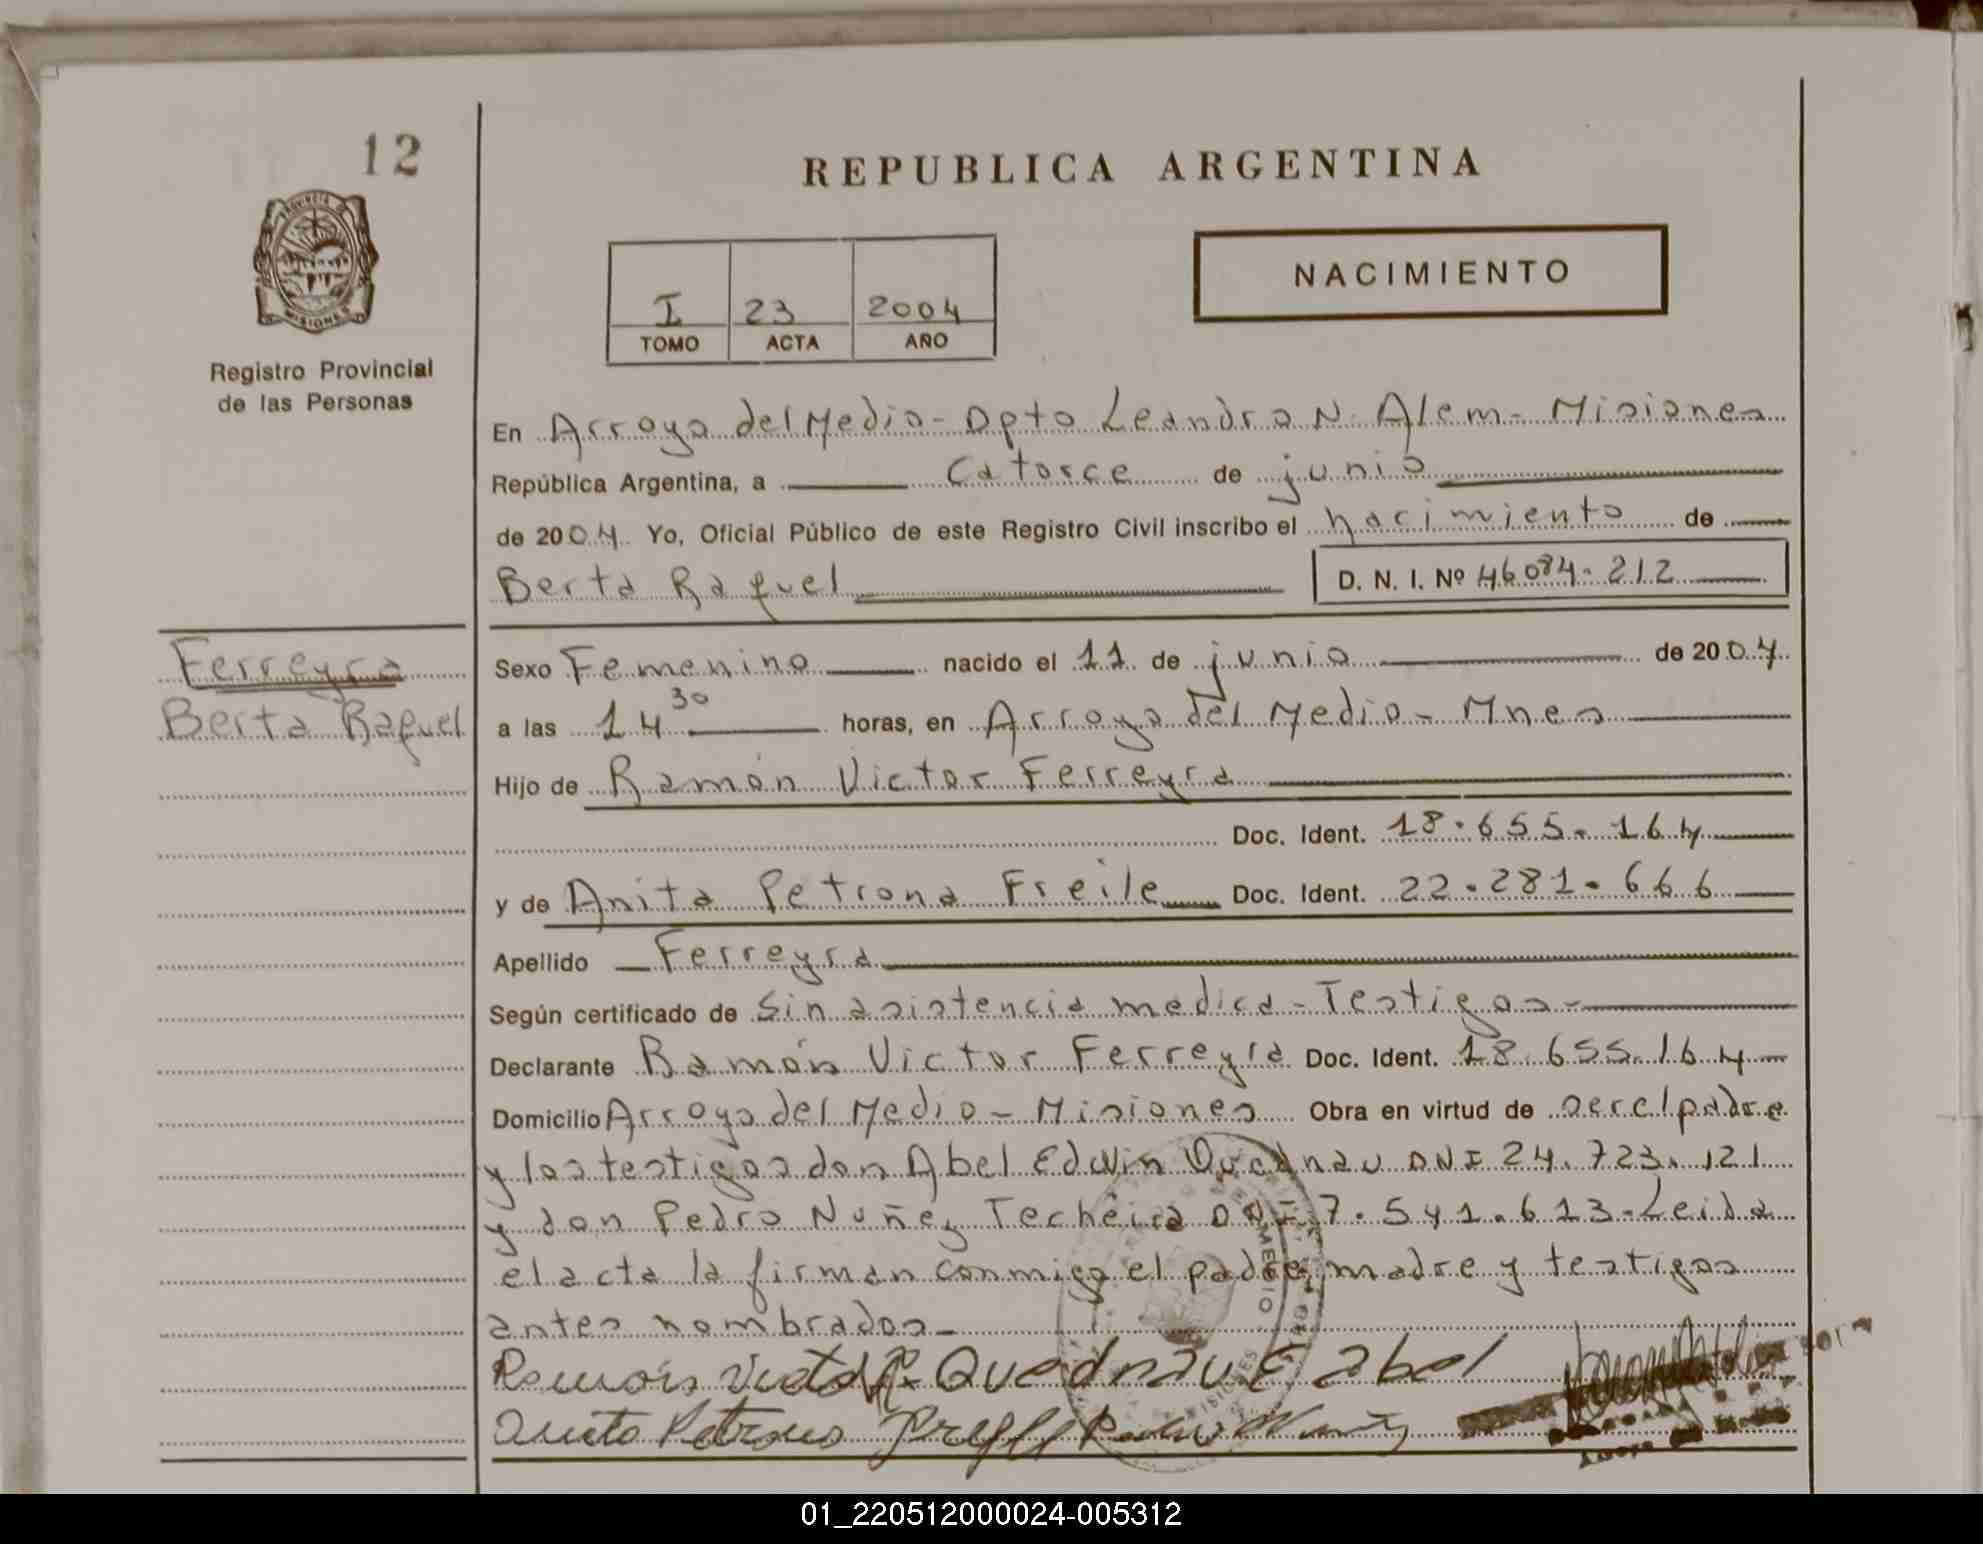 12
REPUBLICA ARGENTINA
PROVINCIA DE
MISIONES
Registro Provincial
de las Personas
I 23 2004
TOMO ACTA AÑO
NACIMIENTO
En Arroyo del Medio - Dpto Leandro N. Alem - Misiones
República Argentina, a Catorce de junio
de 2004 Yo, Oficial Público de este Registro Civil inscribo el nacimiento de
Berta Raquel D. N. I. Nº 46084.212
Ferreyra
Berta Raquel
Sexo Femenino nacido el 11 de junio de 2004
a las 14 30 horas, en Arroyo del Medio - Mnes
Hijo de Ramón Victor Ferreyra
Doc. Ident. 18.655.164
y de Anita Petrona Freile Doc. Ident. 22.281.666
Apellido Ferreyra
Según certificado de Sin asistencia medica - Testigos -
Declarante Ramón Victor Ferreyra Doc. Ident. 18.655.164
Domicilio Arroyo del Medio - Misiones Obra en virtud de ser el padre
y los testigos don Abel Edwin Quednau DNI 24.723.121
y don Pedro Nuñez Techeira DNI 7.541.613 - Leida
el acta la firman conmigo el padre, madre y testigos
antes nombrados -
Ramón Victor F. Quednau E abel
Anita Petrona Pedro Nuñez
01_220512000024-005312